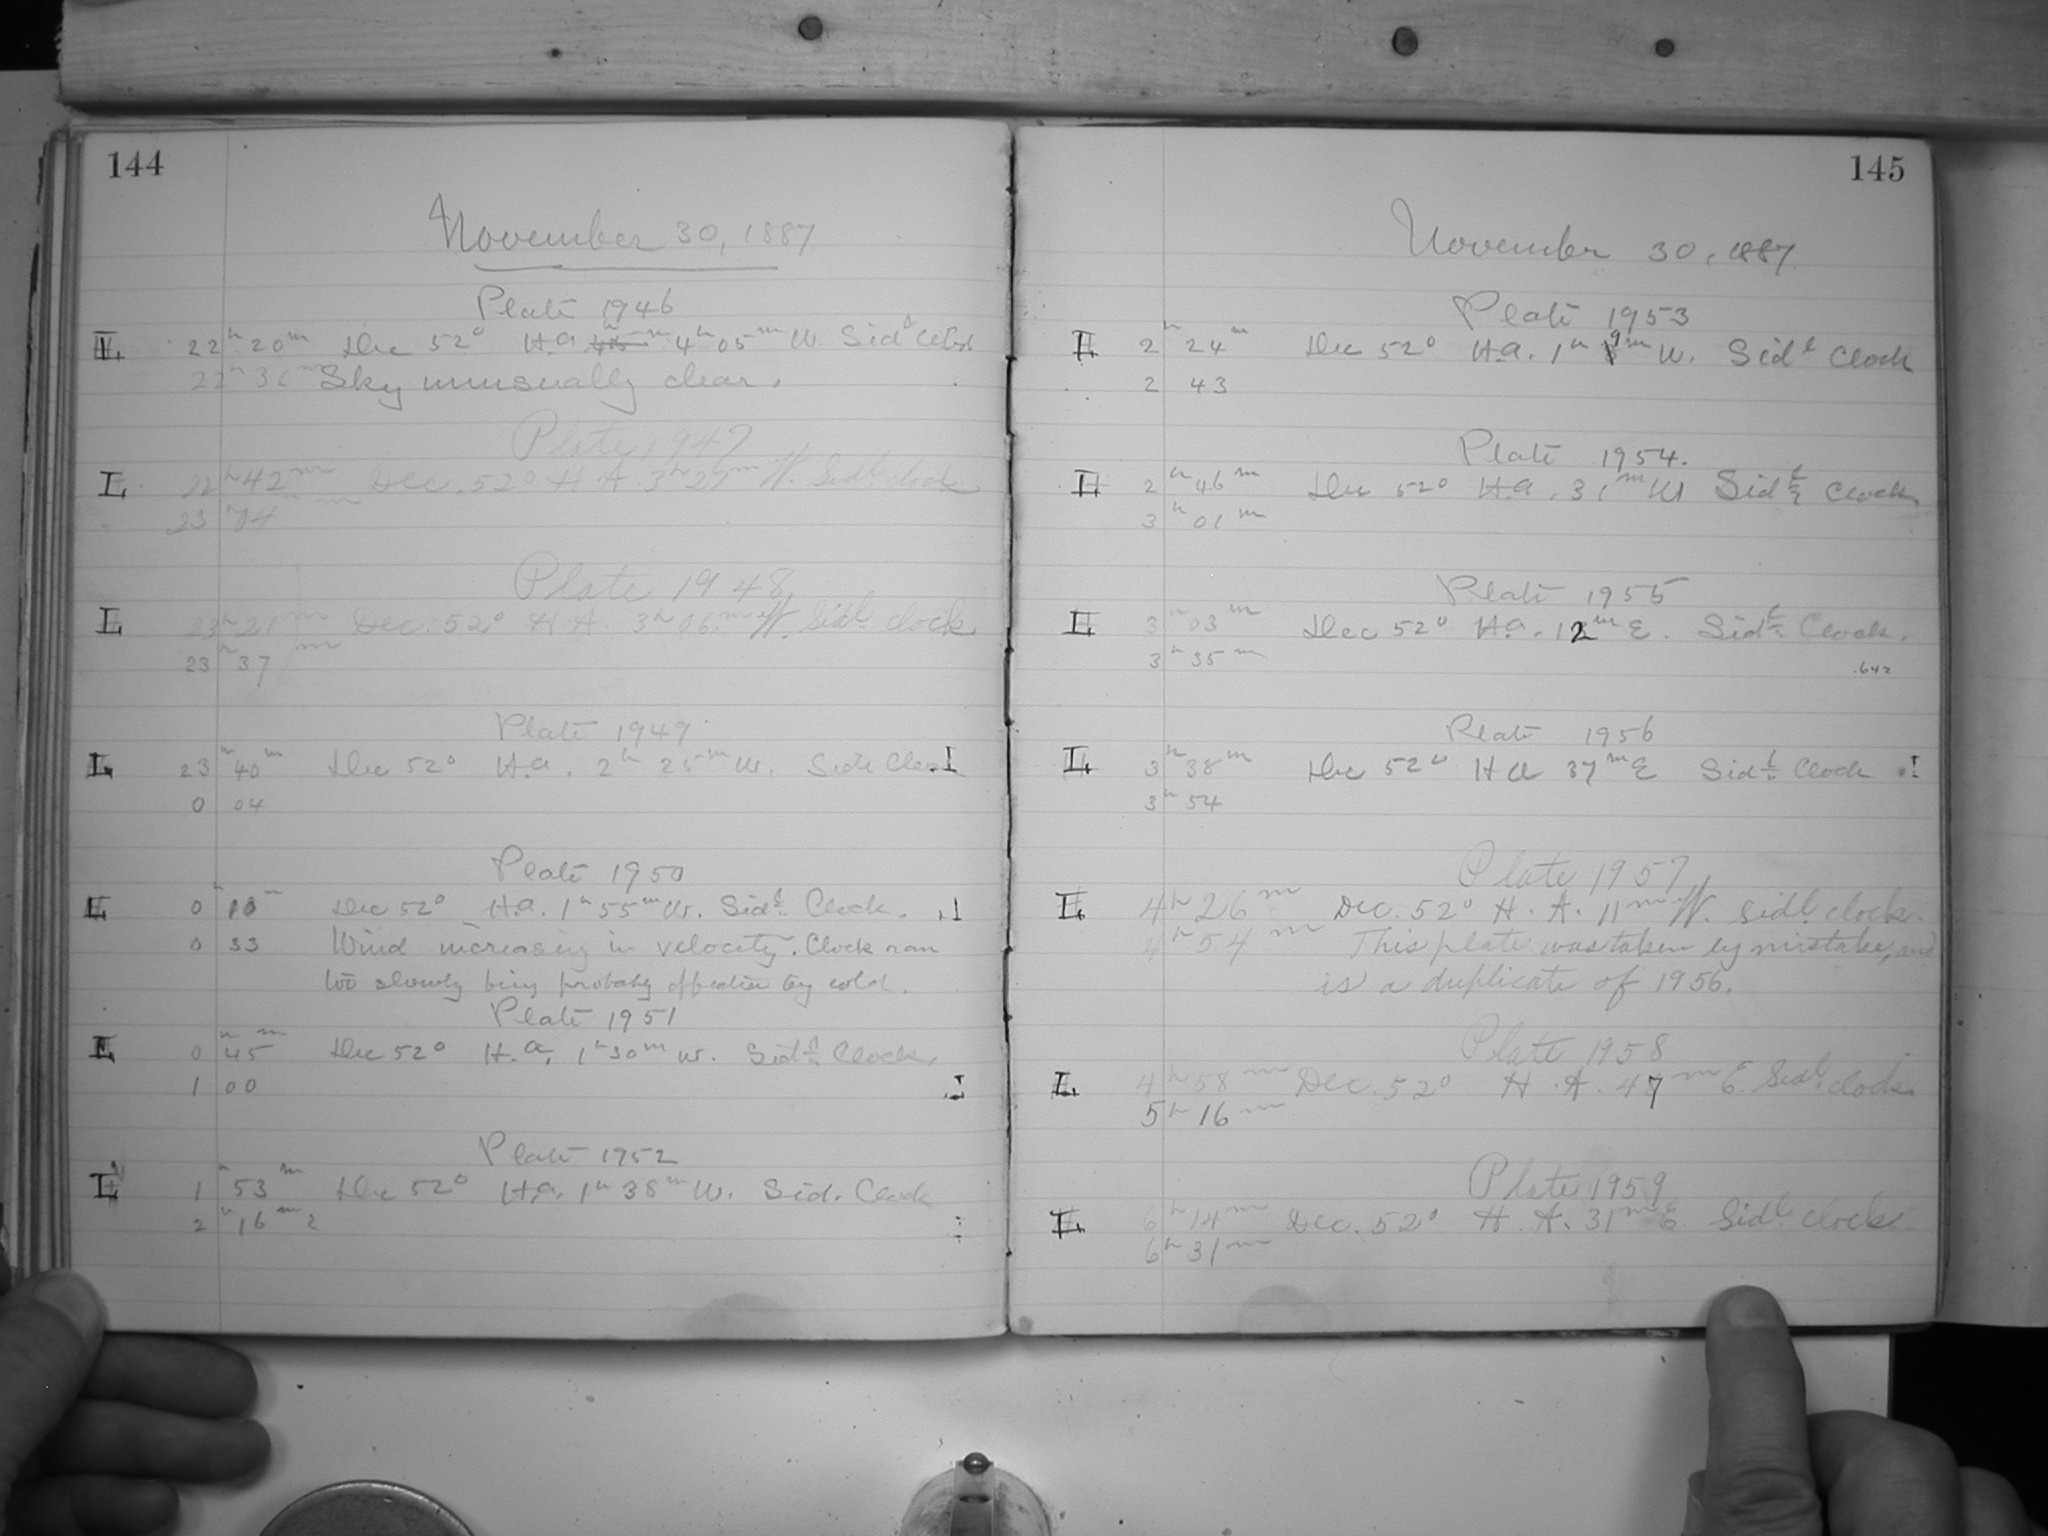 144
November 30, 1887
Plate 1946
I 22 h 20 m Dec 52° H.A. 4 h 05 m W. Sid l Clock
22 h 36 m Sky unusually clear.
Plate 1947
I 22 h 42 m Dec. 52° H.A. 3 h 27 m W. Sidl. clock
23 h 14 m
Plate 1948
I 23 h 21 m Dec. 52° H.A. 3 h 06 m W. Sidl. clock
23 h 37 m
Plate 1949
I 23 h 40 m Dec 52° H.A. 2 h 25 m W. Sidl
0 04
Plate 1950
I 0 h 10 m Dec 52° H.A. 1 h 55 m W. Sidl. Clock.
0 33 Wind increasing in velocity. Clock ran
too slowly being probably by cold.
Plate 1951
I 0 h 45 m Dec 52° H.A. 1 h 30 m W. Sidl. Clock.
1 00
Plate 1952
I 1 h 53 m Dec 52° H.A. 1 h 38 m W. Sid. Clock
2 h 16 m
145
November 30, 1887
Plate 1953
I 2 h 24 m Dec 52° H.A. 1 h 9 m W. Sid l Clock
2 43
Plate 1954.
I 2 h 46 m Dec 52° H.A. 31 m W Sidl. Clock
3 h 01 m
Plate 1955
I 3 h 03 m Dec 52° H.A. 12 m E. Sidl. Clock.
3 h 35 m .642
Plate 1956
I 3 h 38 m Dec 52° H A 37 m E Sidl. Clock
3 h 54
Plate 1957
I 4 h 26 m Dec. 52° H.A. 11 m W. Sidl. clock.
4 h 54 m This plate was taken by mistake, and
is a duplicate of 1956.
Plate 1958
I 4 h 58 m Dec. 52° H.A. 47 m E. Sidl. clock.
5 h 16 m
Plate 1959
I 6 h 14 m Dec. 52° H.A. 31 m E Sidl clock
6 h 31 m